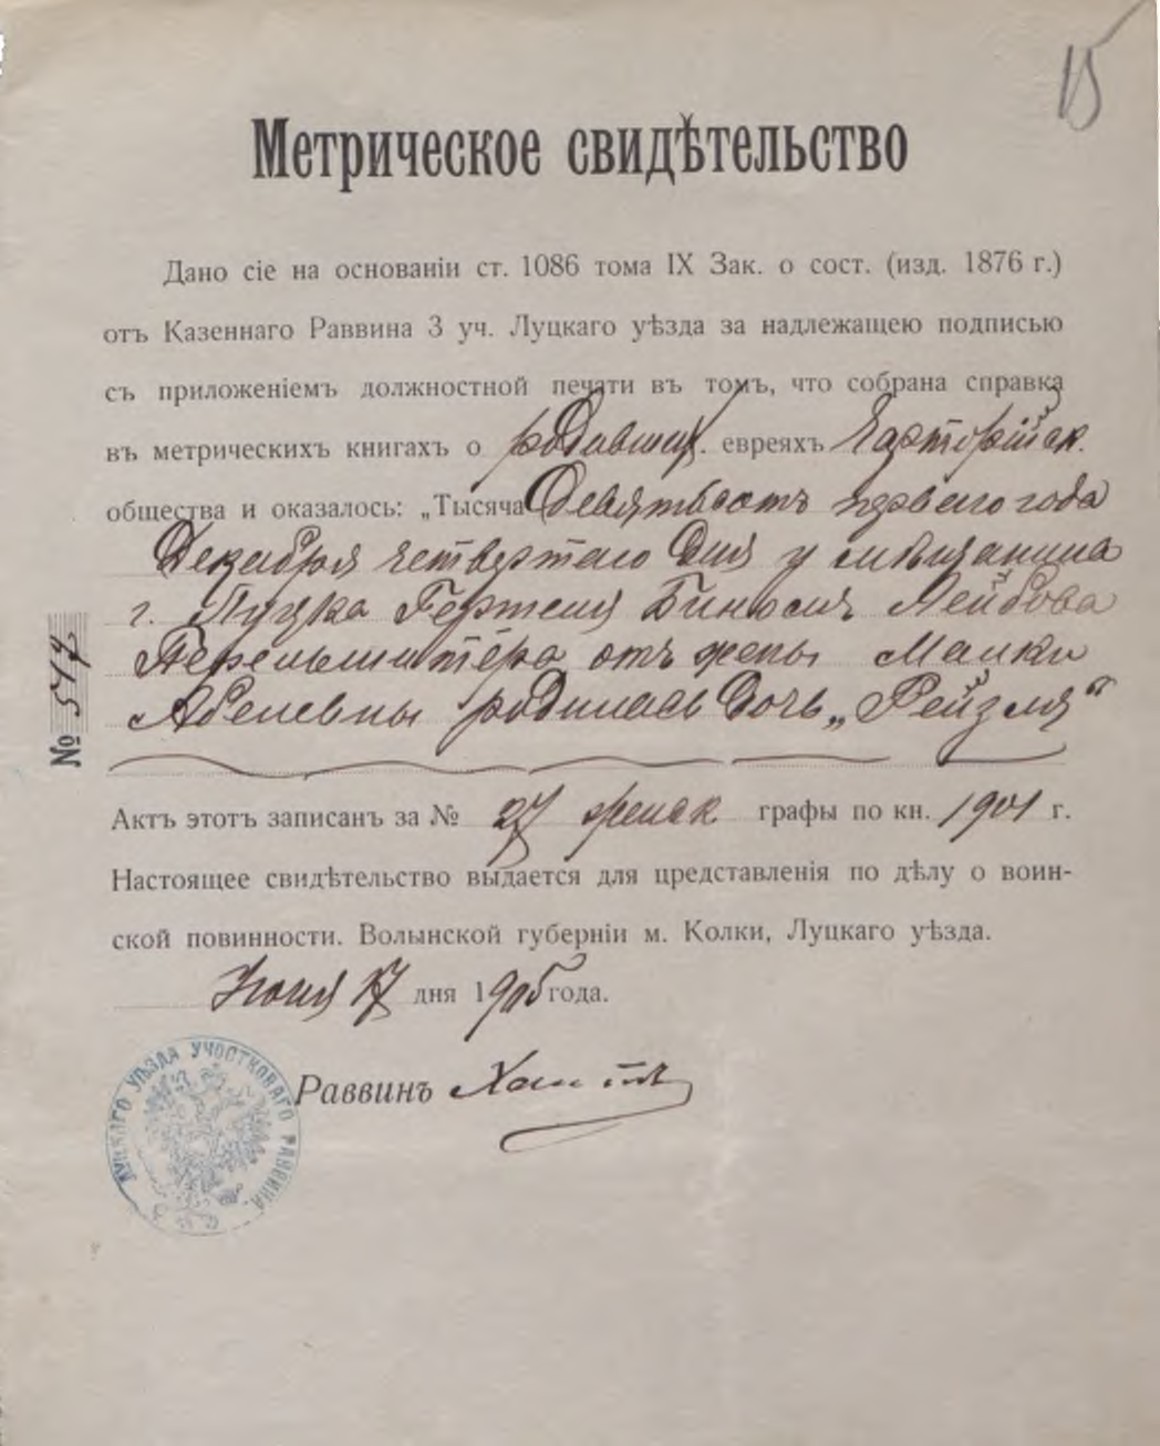 15
Метрическое свидѣтельство
Дано сіе на основаніи ст. 1086 тома IX Зак. о сост. (изд. 1876 г.)
отъ Казеннаго Раввина 3 уч. Луцкаго уѣзда за надлежащею подписью
съ приложеніемъ должностной печати въ томъ, что собрана справка
въ метрическихъ книгахъ о родивших. евреяхъ Чарторійск.
общества и оказалось: „Тысяча Девятьсотъ перваго года
Декабря четвертаго дня у мѣщанина
г. Луцка Гершеля Бинюма Лейбова
Перельштера отъ жены Малки
Абелевны родилась дочь „Рейзля“
№ 517
Актъ этотъ записанъ за № 27 женск. графы по кн. 1901 г.
Настоящее свидѣтельство выдается для представленія по дѣлу о воин-
ской повинности. Волынской губерніи м. Колки, Луцкаго уѣзда.
Іюня 17 дня 1905 года.
Раввинъ
ЛУЦКАГО УѢЗДА УЧАСТКОВАГО РАВВИНА